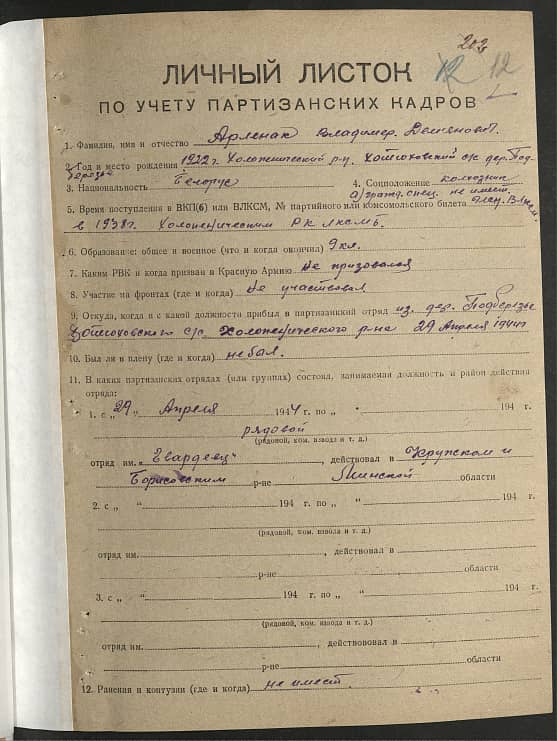 202
12 12
ЛИЧНЫЙ ЛИСТОК
ПО УЧЕТУ ПАРТИЗАНСКИХ КАДРОВ
1. Фамилия, имя и отчество Арленак Владимир
2. Год и место рождения 1922 г. Холопеничский р-н, с/с дер. Под-
березье
3. Национальность белорус 4. Соцположение колхозник
б) гражд. спец. не имеет.
5. Время поступления в ВКП(б) или ВЛКСМ, № партийного или комсомольского билета
в 1938 г. Холопеничским РК ЛКСМБ.
6. Образование: общее и военное (что и когда окончил) 9 кл.
7. Каким РВК и когда призван в Красную Армию Не призовался
8. Участие на фронтах (где и когда) Не участвовал
9. Откуда, когда и с какой должности прибыл в партизанский отряд из дер. Подберезье
с/с Холопеничского р-на 29 Апреля 1944 г.
10. Был ли в плену (где и когда) не был.
11. В каких партизанских отрядах (или группах) состоял, занимаемая должность и район действия
отряда:
1. с „29“ Апреля 1944 г. по „ “ 194 г.
рядовой
(рядовой, ком. взвода и т. д.)
отряд им. „Гвардеец“, действовал в Крупском и
Борисовским р-не Минской области
2. с „ “ 194 г. по „ “ 194 г.
(рядовой, ком. взвода и т. д.)
отряд им. , действовал в
р-не области
3. с „ “ 194 г. по „ “ 194 г.
(рядовой, ком. взвода и т. д.)
отряд им. , действововал в
р-не области
12. Ранения и контузии (где и когда) не имеет.